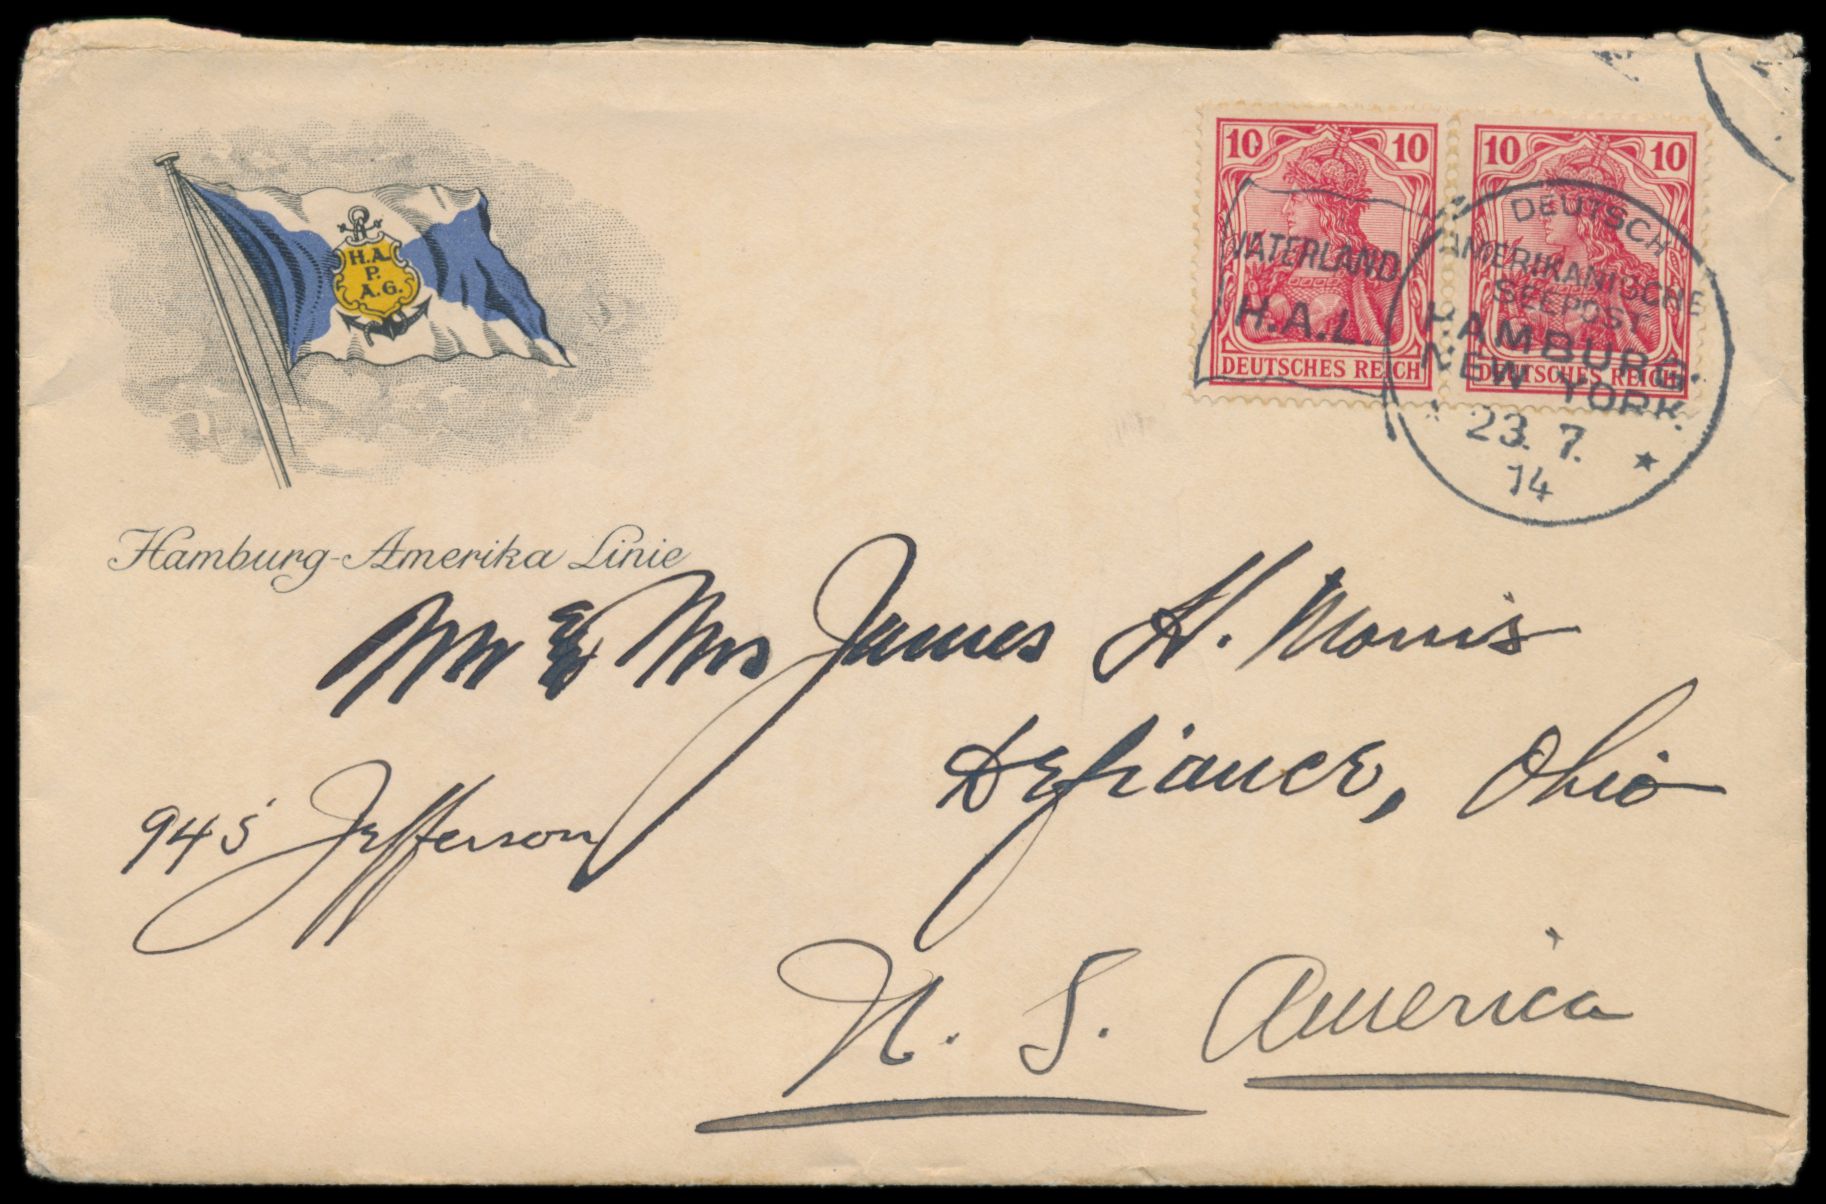 H.A.
P.
A.G.
Hamburg-Amerika Linie
10 10
DEUTSCHES REICH
10 10
DEUTSCHES REICH
VATERLAND
H.A.L.
DEUTSCH
AMERIKANISCHE
SEEPOST
HAMBURG.
NEW YORK.
* 23. 7. *
14
Mr & Mrs James H. Morris
945 Jefferson
Defiance, Ohio
N. S. America